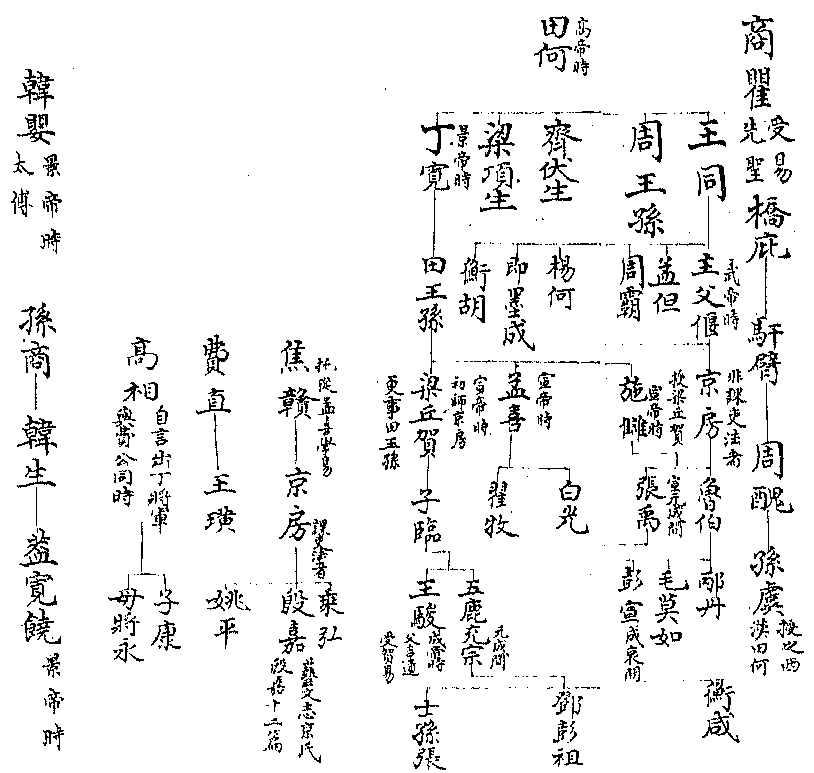 商瞿
受易
先聖
橋庇
馯臂
周醜
孫虞
授之西
漢田何
田何
高帝時
王同
周王孫
齊伏生
梁項生
丁寬
景帝時
主父偃
武帝時
孟但
周霸
楊何
即墨成
衡胡
田王孫
京房
非課吏法者
授梁丘賀
施讎
宣帝時
孟喜
宣帝時
梁丘賀
宣帝時
初師京房
更事田王孫
魯伯
張禹
宣元成間
白光
翟牧
子臨
邴丹
毛莫如
彭宣
成哀間
五鹿充宗
元成間
王駿
成帝時
父王道
受賀易
衡咸
鄧彭祖
士孫張
焦贛
托從孟喜學易
京房
課吏法者
乘弘
殷嘉
藝文志京氏
殷嘉十二篇
姚平
費直
王璜
高相
自言出丁將軍
與費公同時
子康
毋將永
韓嬰
景帝時
太傅
孫商
韓生
蓋寬饒
景帝時